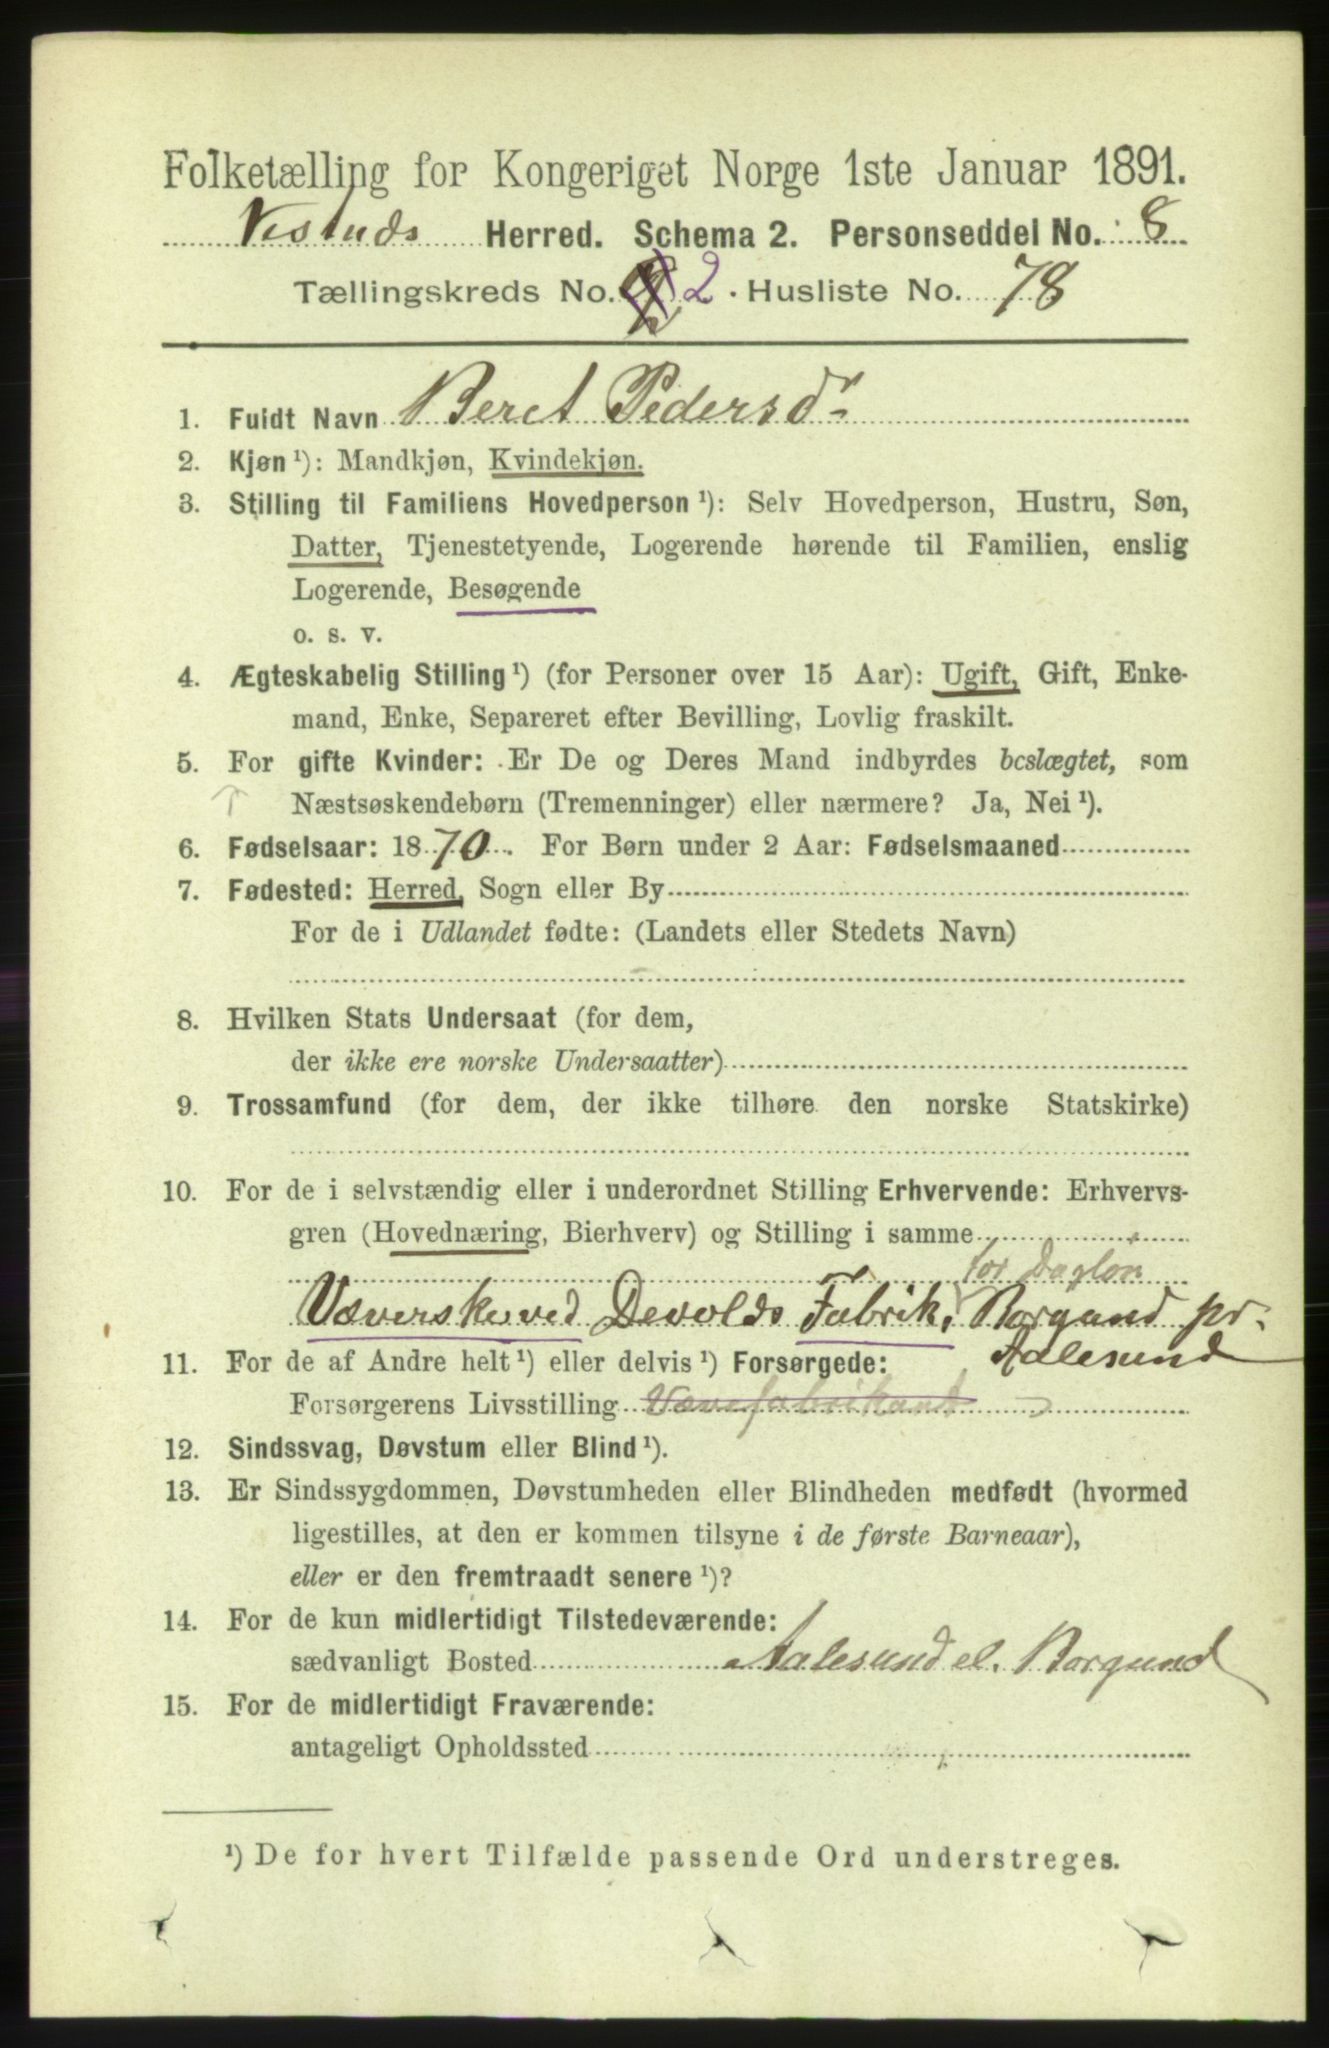 Folketælling for Kongeriget Norge 1ste Januar 1891.
Vestnds Herred. Schema 2. Personseddel No. 8
Tællingskreds No. 2. Husliste No. 78
1. Fuldt Navn Beret Pedersdr
2. Kjøn ¹): Mandkjøn, Kvindekjøn.
3. Stilling til Familiens Hovedperson ¹): Selv Hovedperson, Hustru, Søn,
Datter, Tjenestetyende, Logerende hørende til Familien, enslig
Logerende, Besøgende
o. s. v.
4. Ægteskabelig Stilling ¹) (for Personer over 15 Aar): Ugift, Gift, Enke-
mand, Enke, Separeret efter Bevilling, Lovlig fraskilt.
5. For gifte Kvinder: Er De og Deres Mand indbyrdes beslægtet, som
Næstsøskendebørn (Tremenninger) eller nærmere? Ja, Nei ¹).
6. Fødselsaar: 1870. For Børn under 2 Aar: Fødselsmaaned
7. Fødested: Herred, Sogn eller By
For de i Udlandet fødte: (Landets eller Stedets Navn)
8. Hvilken Stats Undersaat (for dem,
der ikke ere norske Undersaatter)
9. Trossamfund (for dem, der ikke tilhøre den norske Statskirke)
10. For de i selvstændig eller i underordnet Stilling Erhvervende: Erhvervs-
gren (Hovednæring, Bierhverv) og Stilling i samme
for Dagløn
Væverske ved Devolds Fabrik, Borgund pr.
Aalesund
11. For de af Andre helt ¹) eller delvis ¹) Forsørgede:
Forsørgerens Livsstilling Vævefabrikant
12. Sindssvag, Døvstum eller Blind ¹).
13. Er Sindssygdommen, Døvstumheden eller Blindheden medfødt (hvormed
ligestilles, at den er kommen tilsyne i de første Barneaar),
eller er den fremtraadt senere ¹)?
14. For de kun midlertidigt Tilstedeværende:
sædvanligt Bosted Aalesund el. Borgund
15. For de midlertidigt Fraværende:
antageligt Opholdssted
¹) De for hvert Tilfælde passende Ord understreges.